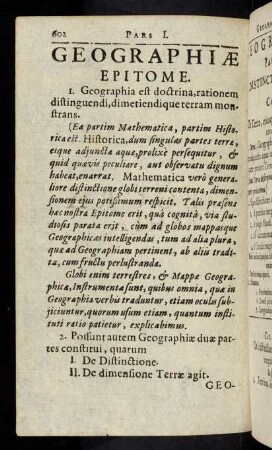 602 PARS I.
GEOGRAPHIÆ
EPITOME.
1. Geographia est doctrina, rationem
distinguendi, dimetiendique terram mon-
strans.
(Ea partim Mathematica, partim Histo-
rica est. Historica, dum singulas partes terra,
eisque adjuncta aqua, prolixè persequitur, &
quid quævis peculiare, aut observatu dignum
habeat, enarrat. Mathematica verò genera-
liore distinctione globi terreni contenta, dimen-
sionem ejus potissimum respicit. Talis præsens
hæc nostra Epitome erit, quâ cognitâ, via stu-
diosis parata erit, cum ad globos mappasque
Geographicas intelligendas, tum ad alia plura,
quæ ad Geographiam pertinent, ab aliis tradi-
ta, cum fructu perlustranda.
Globi enim terrestres, & Mappæ Geogra-
phicæ, Instrumenta sunt, quibus omnia, quæ in
Geographia verbis traduntur, etiam oculis sub-
jiciuntur, quorum usum etiam, quantum insti-
tuti ratio patietur, explicabimus.
2. Possunt autem Geographiæ duæ par-
tes constitui, quarum
I. De Distinctione.
II. De dimensione Terræ agit.
GEO-